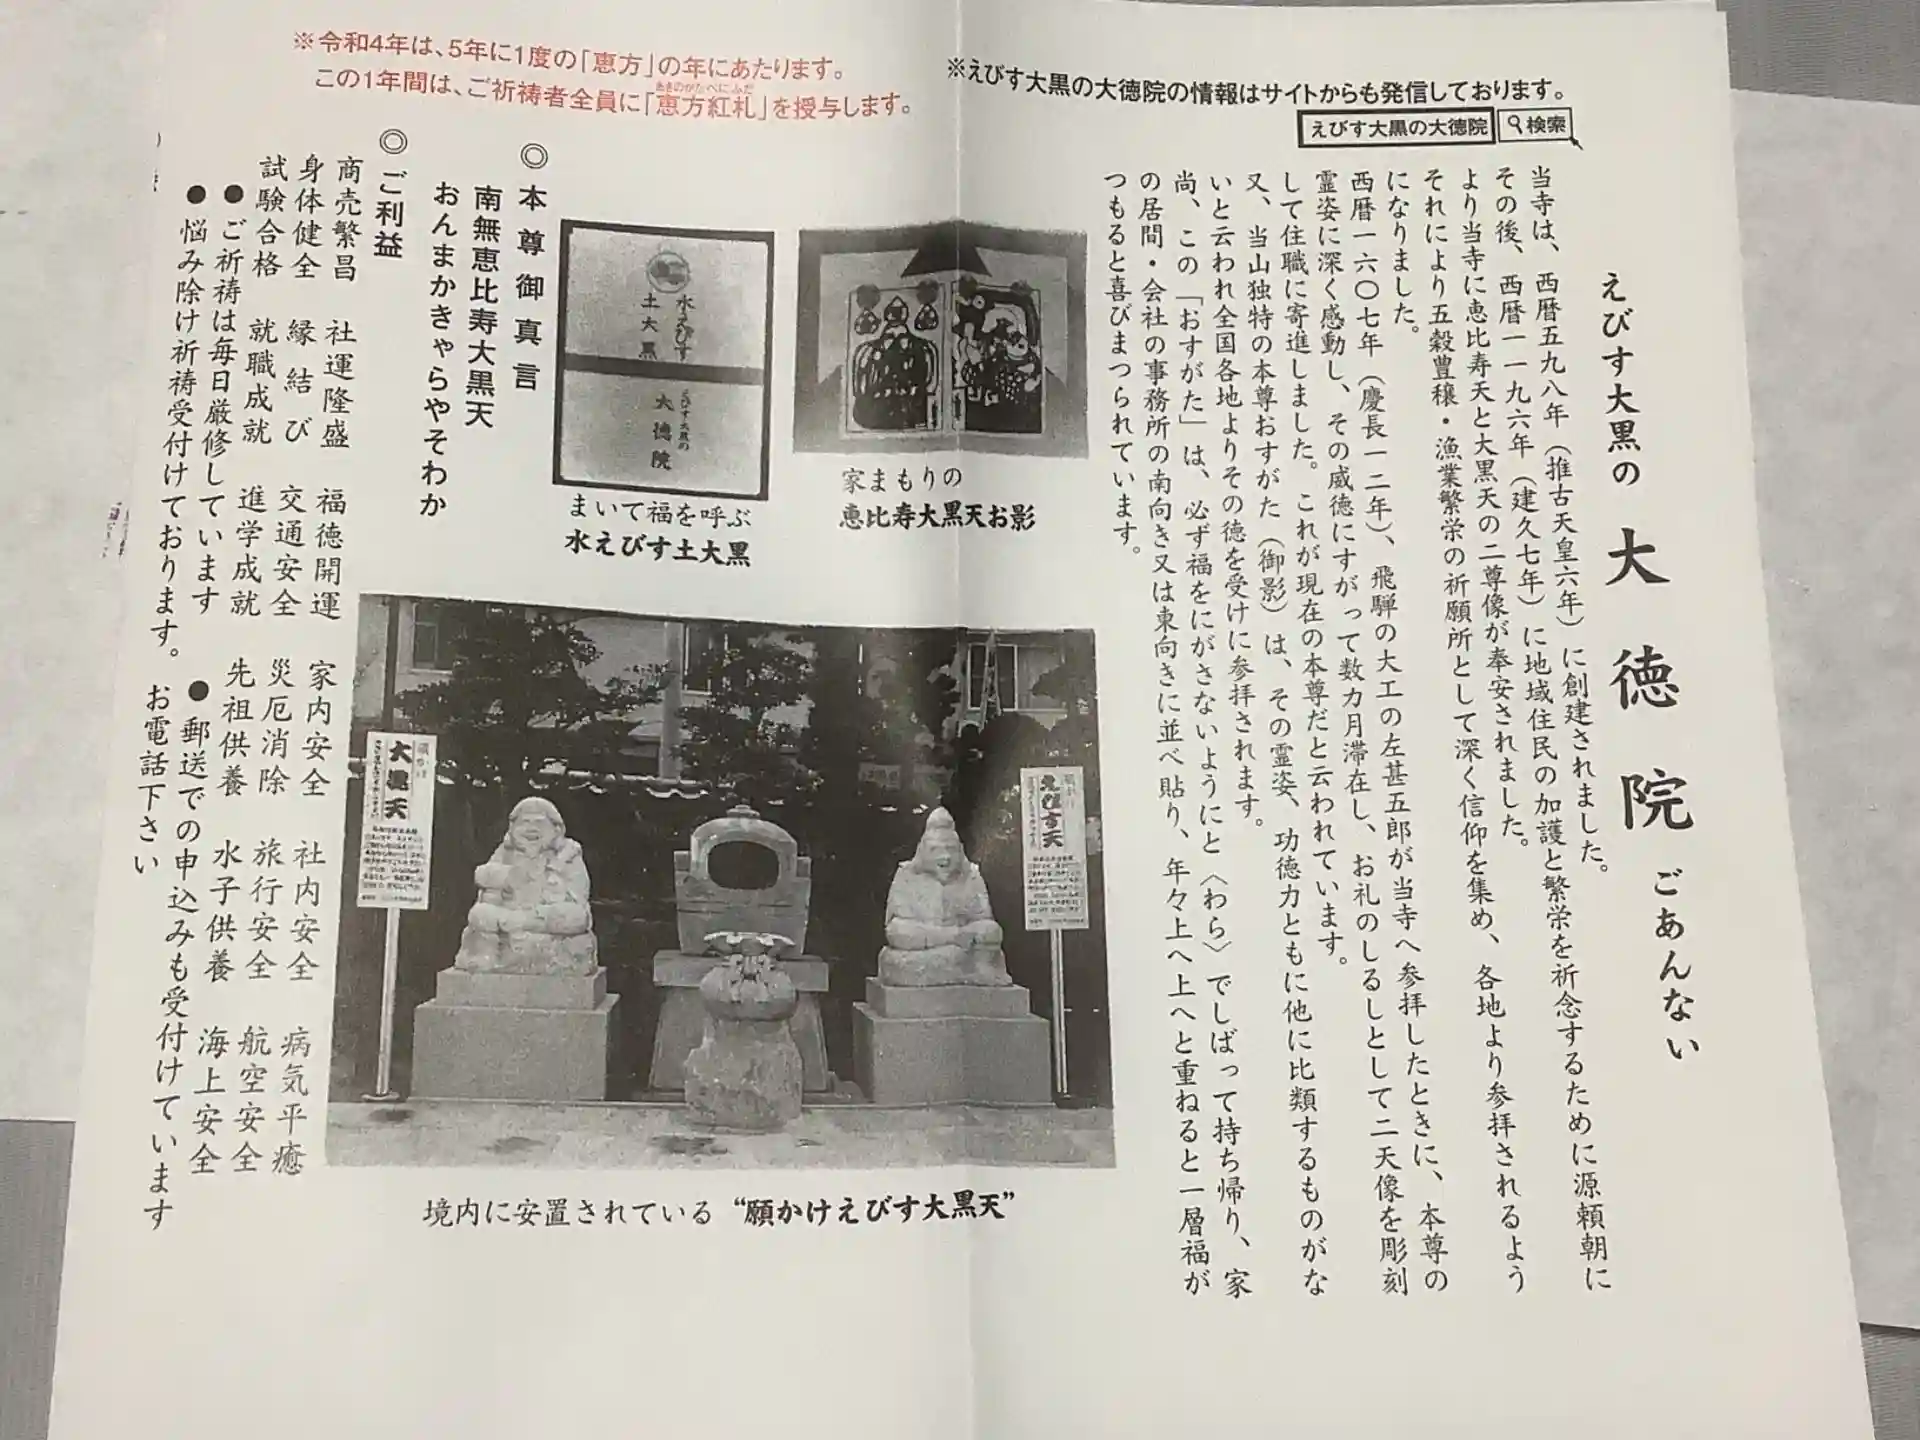 ※令和4年は、5年に1度の「恵方」の年にあたります。
この1年間は、ご祈祷者全員に「恵方紅札」を授与します。
あきのかたべにふだ
※えびす大黒の大徳院の情報はサイトからも発信しております。
えびす大黒の大徳院
検索
えびす大黒の 大徳院 ごあんない
当寺は、西暦五九八年（推古天皇六年）に創建されました。
その後、西暦一一九六年（建久七年）に地域住民の加護と繁栄を祈念するために源頼朝に
より当寺に恵比寿天と大黒天の二尊像が奉安されました。
それにより五穀豊穣・漁業繁栄の祈願所として深く信仰を集め、各地より参拝されるよう
になりました。
西暦一六〇七年（慶長一二年）、飛騨の大工の左甚五郎が当寺へ参拝したときに、本尊の
霊姿に深く感動し、その威徳にすがって数カ月滞在し、お礼のしるしとして二天像を彫刻
して住職に寄進しました。これが現在の本尊だと云われています。
又、当山独特の本尊おすがた（御影）は、その霊姿、功徳力ともに他に比類するものがな
いと云われ全国各地よりその徳を受けに参拝されます。
尚、この「おすがた」は、必ず福をにがさないようにと〈わら〉でしばって持ち帰り、家
の居間・会社の事務所の南向き又は東向きに並べ貼り、年々上へ上へと重ねると一層福が
つもると喜びまつられています。
家まもりの
恵比寿大黒天お影
水えびす
土大黒
えびす大黒の
大徳院
まいて福を呼ぶ
水えびす土大黒
◎本尊御真言
南無恵比寿大黒天
おんまかきゃらやそわか
◎ご利益
商売繁昌 社運隆盛 福徳開運 家内安全 社内安全 病気平癒
身体健全 縁結び 交通安全 災厄消除 旅行安全 航空安全
試験合格 就職成就 進学成就 先祖供養 水子供養 海上安全
●ご祈祷は毎日厳修しています ●郵送での申込みも受付けています
●悩み除け祈祷受付けております。 お電話下さい
大黒天
えびす天
境内に安置されている“願かけえびす大黒天”